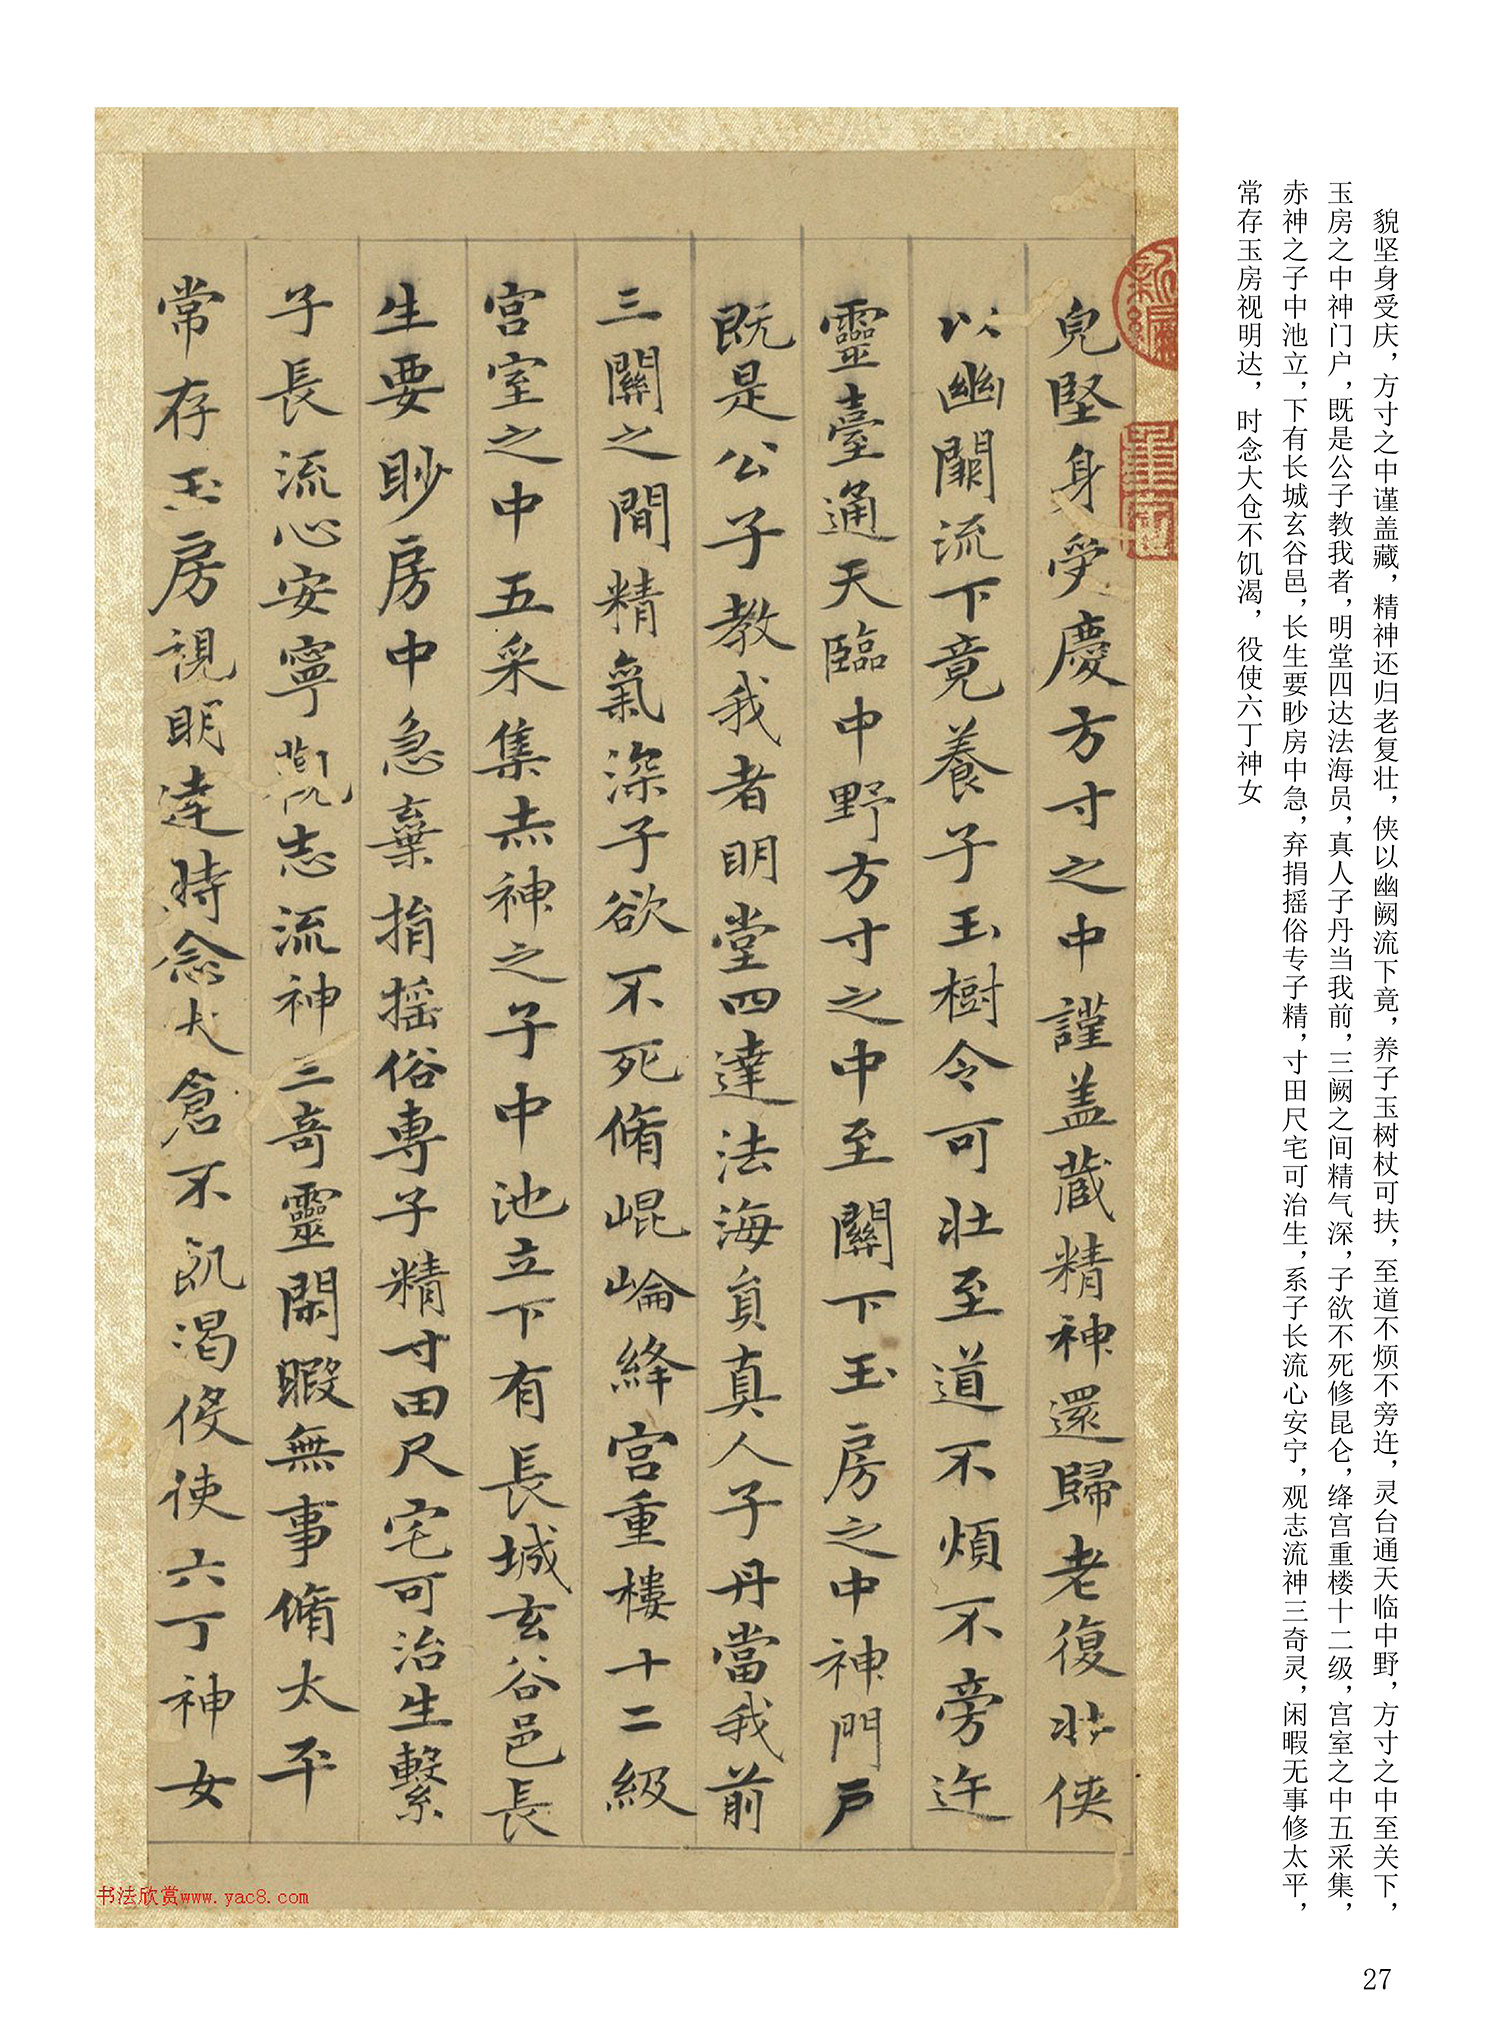 貌坚身受庆，方寸之中谨盖藏，精神还归老复壮，侠以幽阙流下竟，养子玉树杖可扶，至道不烦不旁迕，灵台通天临中野，方寸之中至关下，
玉房之中神门户，既是公子教我者，明堂四达法海员，真人子丹当我前，三阙之间精气深，子欲不死修昆仑，绛宫重楼十二级，宫室之中五采集，
赤神之子中池立，下有长城玄谷邑，长生要眇房中急，弃捐摇俗专子精，寸田尺宅可治生，系子长流心安宁，观志流神三奇灵，闲暇无事修太平，
常存玉房视明达，时念大仓不饥渴，役使六丁神女
皃堅身受慶方寸之中謹盖藏精神還歸老復壮侠
以幽闕流下竟養子玉樹令可壮至道不煩不旁迕
靈臺通天臨中野方寸之中至關下玉房之中神門户
既是公子教我者明堂四達法海員真人子丹當我前
三關之間精氣深子欲不死脩崐崘絳宫重樓十二級
宫室之中五采集赤神之子中池立下有長城玄谷邑長
生要眇房中急棄捐搖俗專子精寸田尺宅可治生繫
子長流心安寧觀志流神三奇靈閑暇無事脩太平
常存玉房視明達時念大倉不飢渴役使六丁神女
书法欣赏www.yac8.com
27